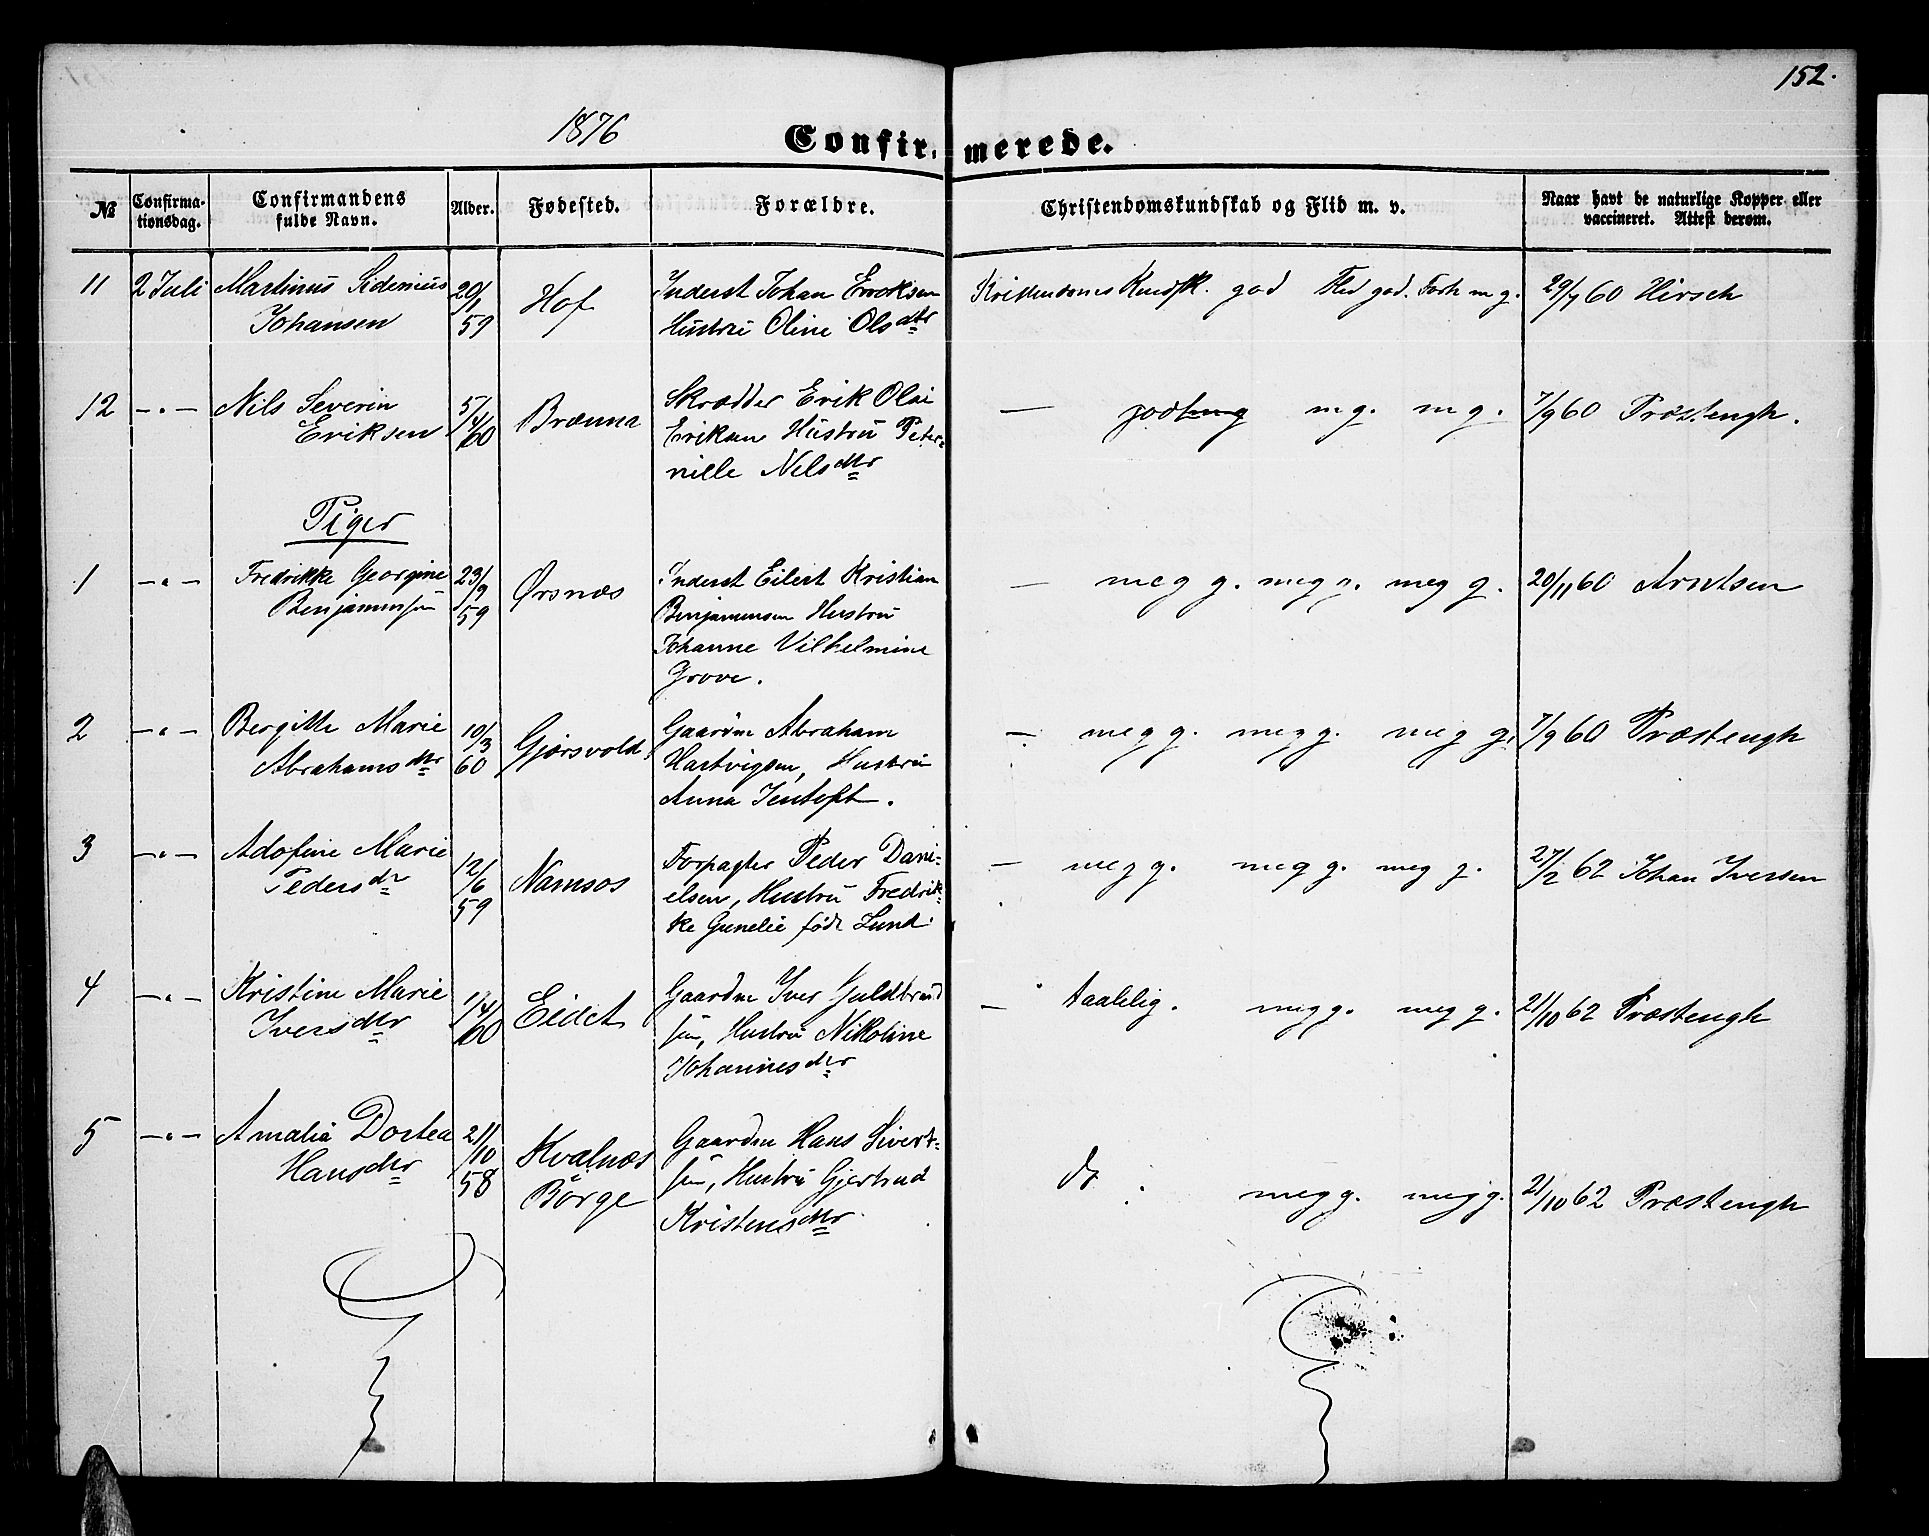 152.
1876
Confirmerede.
№ Confirmationsdag. Confirmandens fulde Navn. Alder. Fødested. Forældre. Christendomskundskab og Flid m. v. Naar havt de naturlige Kopper eller vaccineret. Attest derom.
11 2 Juli Martinus Sidenius 20/1 Hof Inderst Johan Erecksen Kristendoms Kundsk. god Flid god. Forh m g. 29/7 60 Hirsch
Johansen 59 Hustru Oline Olsdtr
12 -"- Nils Severin 5/4 Brænna Skrædder Erik Olai — godt m g. m g. 7/9 60 Præstengh.
Eriksen 60 Eriksen Hustru Peter-
nille Nelsdtr
Piger
1 -"- Fredrikke Georgine 23/9 Ørsnæs Inderst Eilert Kristian — meg g. meg g. meg g. 20/11 60 Arntsen
Benjaminsen 59 Benjaminsen Hustru
Johanne Vilhelmine
Grove.
2 -"- Bergitte Marie 10/3 Gjørsvold Gaardm Abraham — meg g. meg g. meg g. 7/9 60 Præstengh
Abrahamsdtr 60 Hartvigsen, Hustru
Anna Jentoft.
3 -"- Adofine Marie 12/6 Namsos Forpagter Peder Dani- — meg g. meg g. meg g. 27/2 62 Johan Iversen
Pedersdr 59 elsen, Hustru Fredrik-
ke Gunelie født Lund
4 -"- Kristine Marie 1/4 Eidet Gaardm Iver Guldbrand — taalelig. meg g. meg g. 21/10 62 Præstengh
Iversdtr 60 sen, Hustru Nikoline
Johannesdtr
5 -"- Amalia Dortea 21/10 Kvalnæs Gaardm Hans Sivert- do meg g. meg g. 21/10 62 Præstengh
Hansdtr 58 Börge sen, Hustru Gjertrud
Kristensdtr